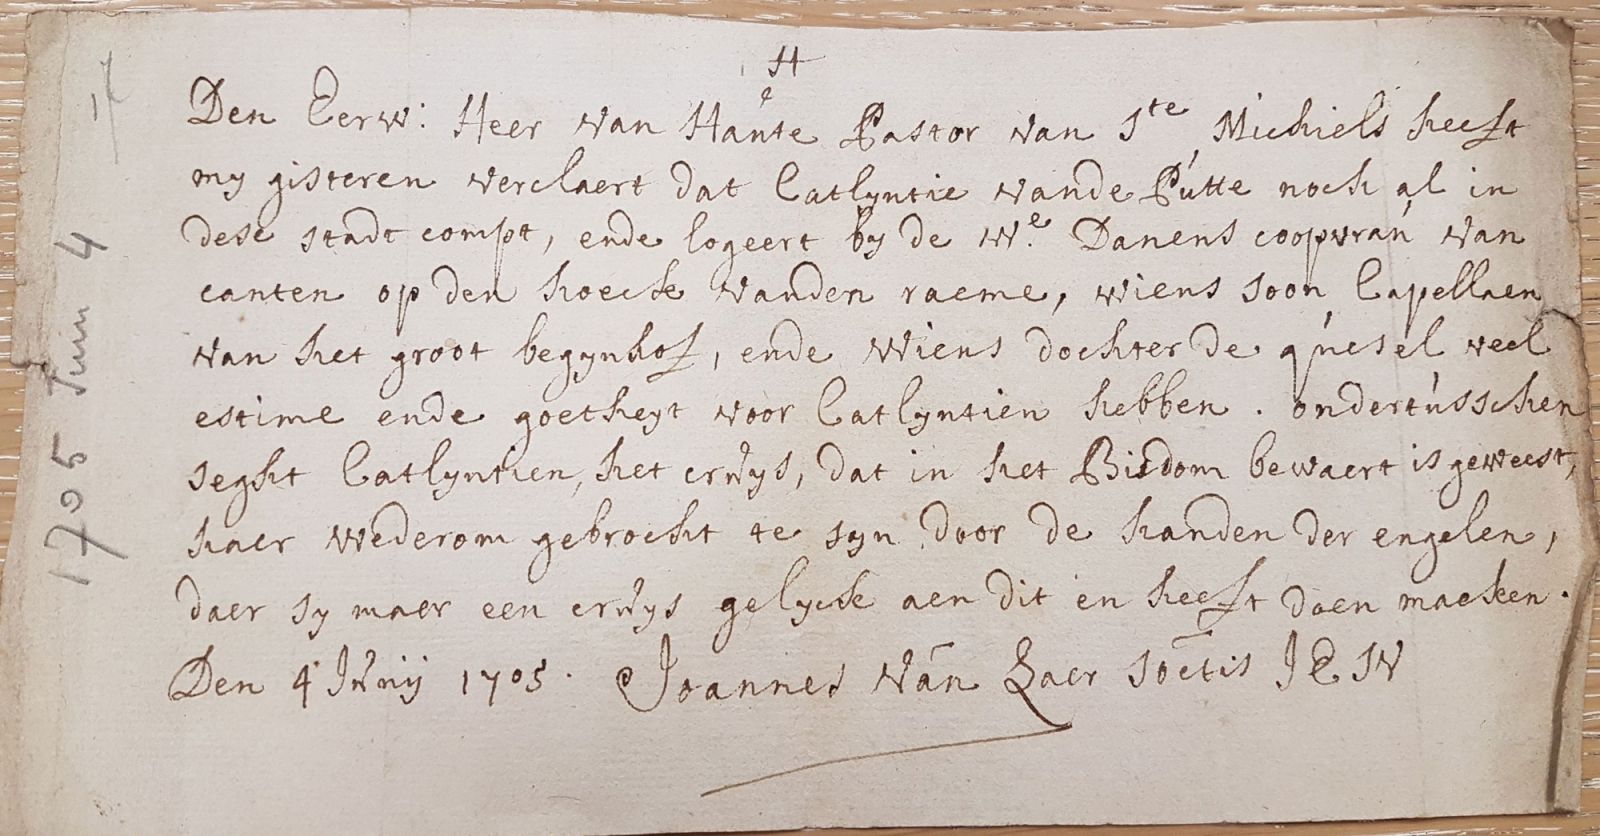 H
Den Eerw: Heer van Hante Pastor van Ste Michiels heeft
my gisteren verclaert dat Catlyntie vande Putte noch al in
dese stadt compt, ende logeert by de We. Danens coopvrau van
canten op den hoeck vanden raeme, wiens soon Capellaen
van het groot begynhof, ende wiens dochter de quesel veel
estime ende goetheyt voor Catlyntien hebben. ondertusschen
seght Catlyntien, het cruys, dat in het Bisdom bewaert is geweest,
haer wederom gebrocht te syn door de handen der engelen,
daer sy maer een cruys gelyck aen dit en heeft doen maeken.
Den 4 Junij 1705. Joannes van Laer soctis JESV
1705 Juni 4